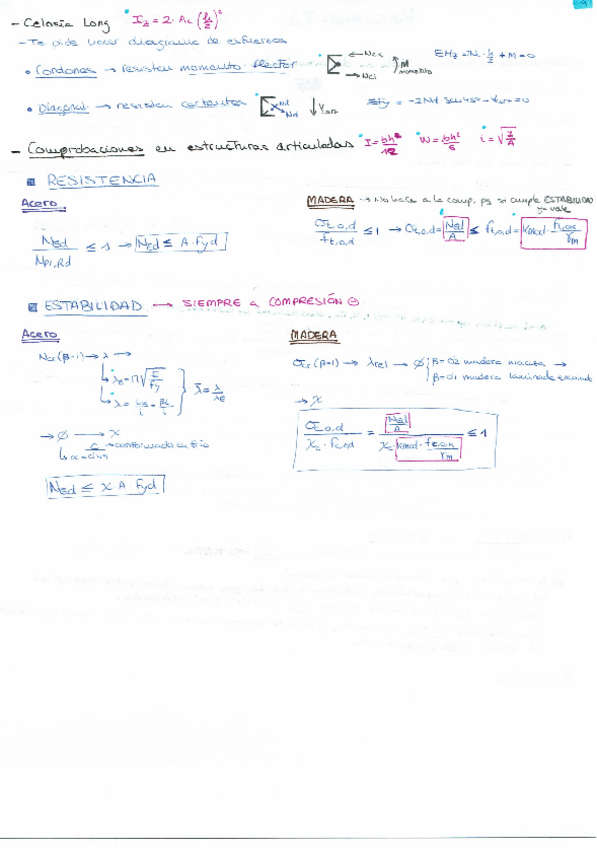 - Celosía Long I₂ = 2 · Ac (h/2)²
- Te pide hacer diagrama de esfuerzos
• Cordones → resisten momento flector ← Ncs → Nci M momento ΣMz = -N · h/2 + M = 0
• Diagonal → resisten cortantes Nd Nd ΣFy = -2Nd sen45º - = 0
- Comprobaciones en estructuras articuladas I = bh³/12 W = bh²/6 i = √(I/A)
RESISTENCIA
Acero
NEd/Npl,Rd ≤ 1 → NEd ≤ A · Fyd
MADERA → No hace a la comp. pq si cumple ESTABILIDAD ya vale
σt,0,d/ft,0,d ≤ 1 → σt,0,d = NEd/A ≤ ft,0,d = Kmod · /γm
ESTABILIDAD → SIEMPRE a COMPRESIÓN ⊖
Acero
Ncr (β=1) → λ →
λE = π√(E/fy)
λ = Lk/i = βL/i
λ̄ = λ/λE
→ Ø → χ
c → conformado en frío
α = 0,49
NEd ≤ χ A Fyd
MADERA
σcr (β=1) → λrel → Ø β = 0.2 madera maciza →
β = 0.1 madera laminada encolada
→ χ
σc,0,d/χc · fc,0,d = NEd/A / χc Kmod · fc,0,k/γm ≤ 1